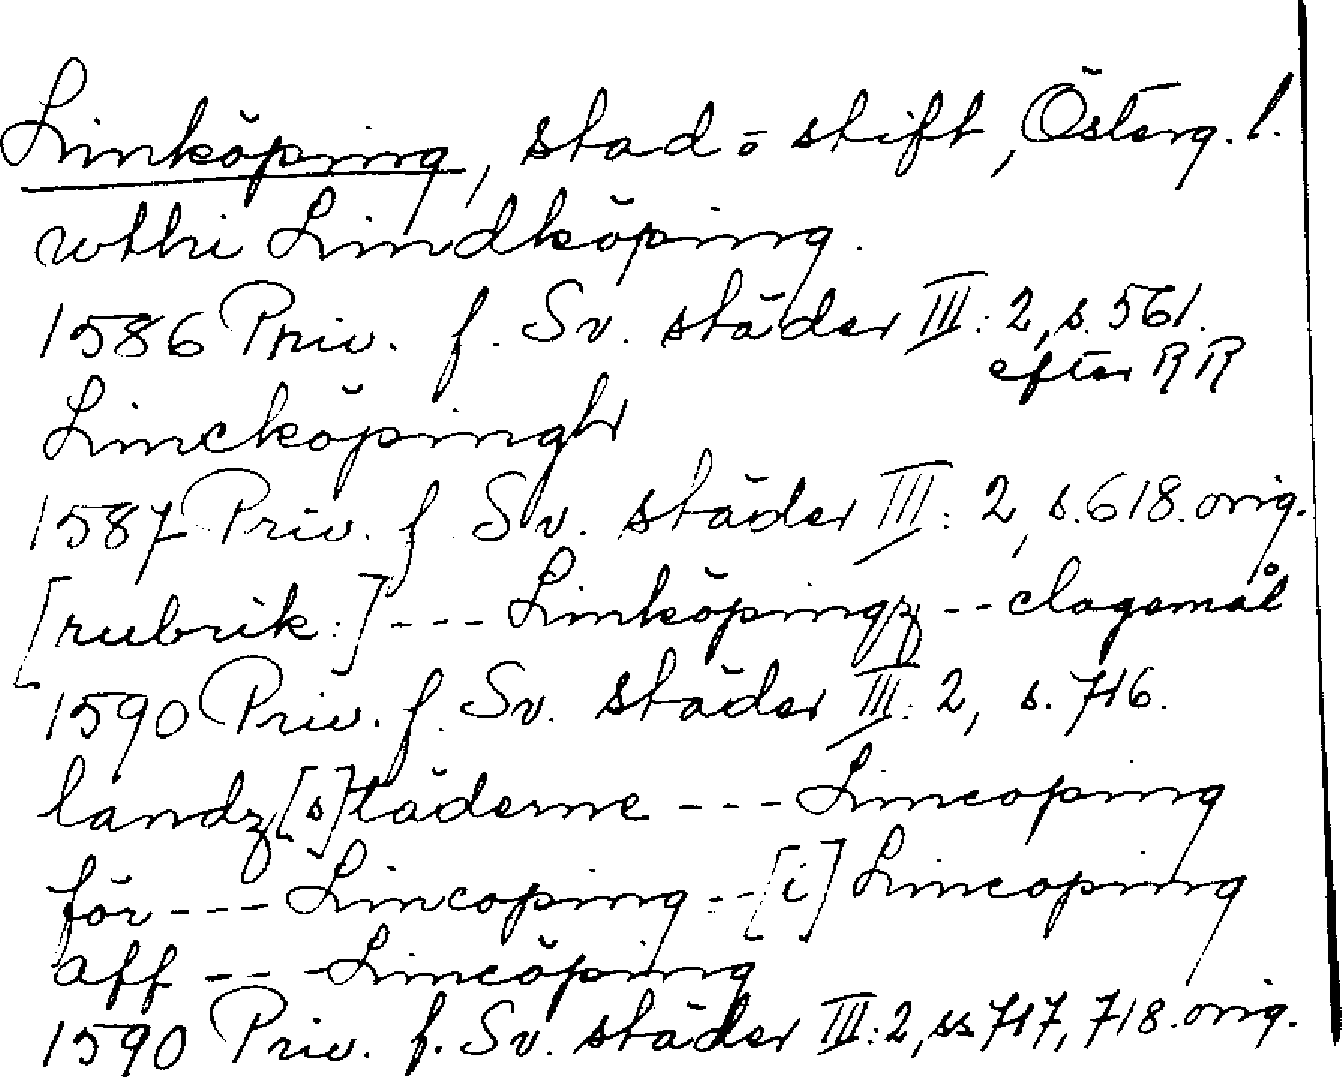 Linköping, stad o stift, Österg. l.
wthi Lindköping.
1586 Priv. f. Sv. städer III: 2, s. 561.
efter RR
Lincköpingh
1587 Priv. f. Sv. städer III: 2, s. 618. orig.
[rubrik:] --- Linköpingz -- clagomål
1590 Priv. f. Sv. städer III: 2, s. 716.
landz[s]täderne --- Lincoping
för --- Lincoping -- [i] Lincoping
aff --- Lincöping
1590 Priv. f. Sv. städer III: 2, ss 717, 718. orig.